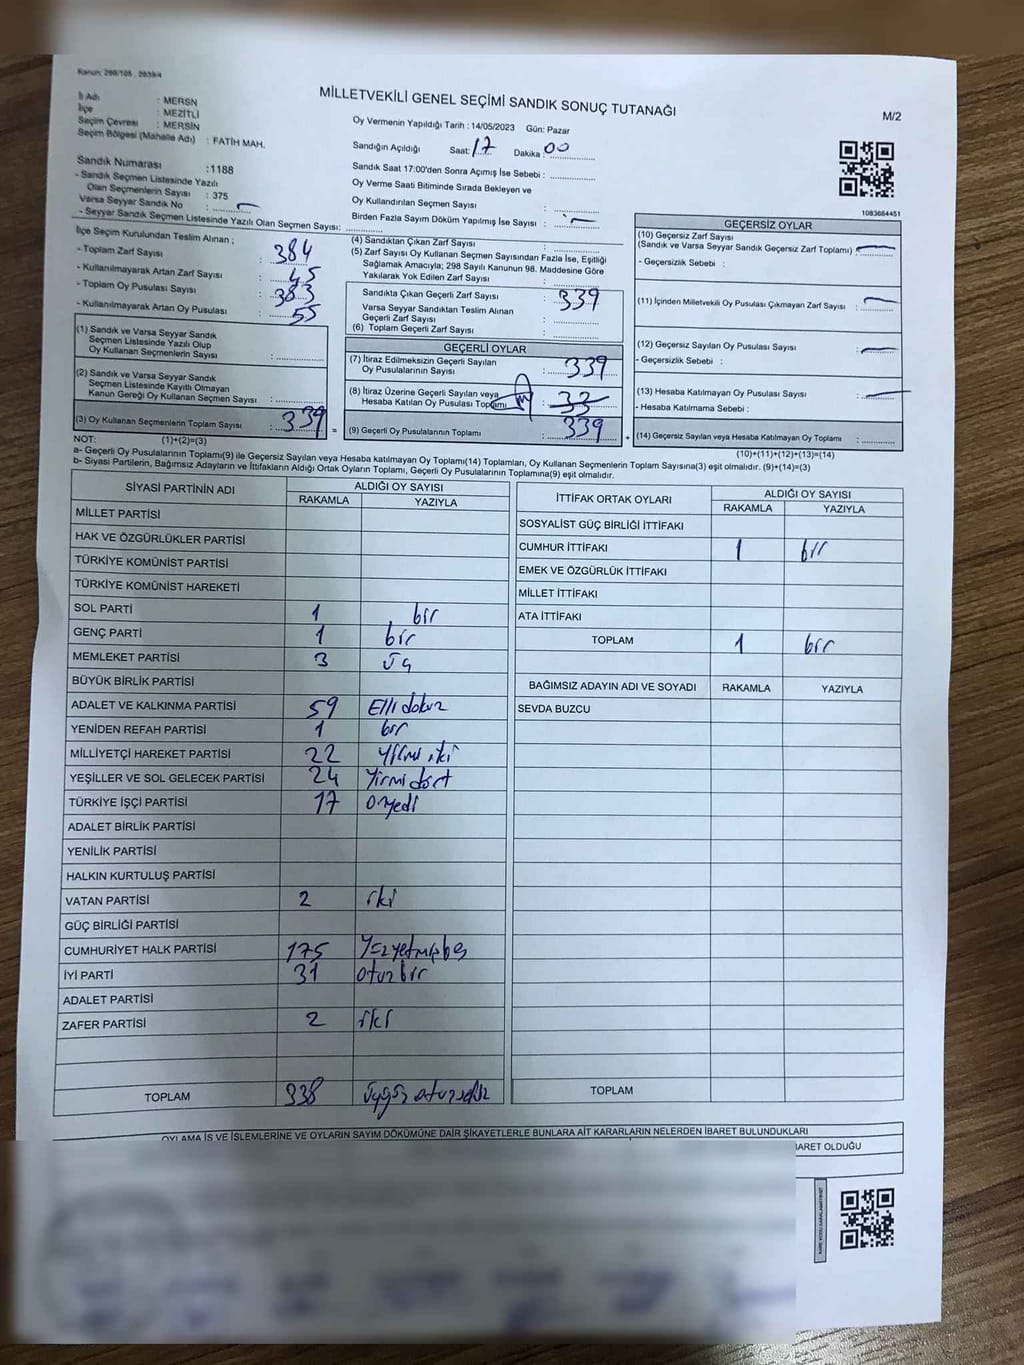 Kanun: 298/105 , 2839/4
MİLLETVEKİLİ GENEL SEÇİMİ SANDIK SONUÇ TUTANAĞI
M/2
İl Adı : MERSN
İlçe : MEZİTLİ
Seçim Çevresi : MERSİN
Seçim Bölgesi (Mahalle Adı) : FATİH MAH.
Oy Vermenin Yapıldığı Tarih : 14/05/2023 Gün: Pazar
Sandığın Açıldığı Saat: 17 Dakika : 00
Sandık Saat 17:00'den Sonra Açımış İse Sebebi :
Oy Verme Saati Bitiminde Sırada Bekleyen ve
Oy Kullandırılan Seçmen Sayısı :
Birden Fazla Sayım Döküm Yapılmış İse Sayısı : -
Sandık Numarası :1188
- Sandık Seçmen Listesinde Yazılı
Olan Seçmenlerin Sayısı : 375
Varsa Seyyar Sandık No : -
- Seyyar Sandık Seçmen Listesinde Yazılı Olan Seçmen Sayısı:
1083664451
İlçe Seçim Kurulundan Teslim Alınan ;
- Toplam Zarf Sayısı : 384
- Kullanılmayarak Artan Zarf Sayısı : 45
- Toplam Oy Pusulası Sayısı : 383
- Kullanılmayarak Artan Oy Pusulası : 55
(1) Sandık ve Varsa Seyyar Sandık
Seçmen Listesinde Yazılı Olup
Oy Kullanan Seçmenlerin Sayısı :
(2) Sandık ve Varsa Seyyar Sandık
Seçmen Listesinde Kayıtlı Olmayan
Kanun Gereği Oy Kullanan Seçmen Sayısı :
(3) Oy Kullanan Seçmenlerin Toplam Sayısı : 339 =
(4) Sandıktan Çıkan Zarf Sayısı :
(5) Zarf Sayısı Oy Kullanan Seçmen Sayısından Fazla İse, Eşitliği
Sağlamak Amacıyla; 298 Sayılı Kanunun 98. Maddesine Göre
Yakılarak Yok Edilen Zarf Sayısı :
Sandıkta Çıkan Geçerli Zarf Sayısı : 339
Varsa Seyyar Sandıktan Teslim Alınan
Geçerli Zarf Sayısı :
(6) Toplam Geçerli Zarf Sayısı :
GEÇERLİ OYLAR
(7) İtiraz Edilmeksizin Geçerli Sayılan
Oy Pusulalarının Sayısı : 339
(8) İtiraz Üzerine Geçerli Sayılan veya
Hesaba Katılan Oy Pusulası Toplamı : 33
(9) Geçerli Oy Pusulalarının Toplamı : 339 +
GEÇERSİZ OYLAR
(10) Geçersiz Zarf Sayısı
(Sandık ve Varsa Seyyar Sandık Geçersiz Zarf Toplamı) : -
- Geçersizlik Sebebi :
(11) İçinden Milletvekili Oy Pusulası Çıkmayan Zarf Sayısı : -
(12) Geçersiz Sayılan Oy Pusulası Sayısı : -
- Geçersizlik Sebebi :
(13) Hesaba Katılmayan Oy Pusulası Sayısı : -
- Hesaba Katılmama Sebebi :
(14) Geçersiz Sayılan veya Hesaba Katılmayan Oy Toplamı :
NOT: (1)+(2)=(3)
(10)+(11)+(12)+(13)=(14)
a- Geçerli Oy Pusulalarının Toplamı(9) ile Geçersiz Sayılan veya Hesaba katılmayan Oy Toplamı(14) Toplamları, Oy Kullanan Seçmenlerin Toplam Sayısına(3) eşit olmalıdır. (9)+(14)=(3)
b- Siyasi Partilerin, Bağımsız Adayların ve İttifakların Aldığı Ortak Oyların Toplamı, Geçerli Oy Pusulalarının Toplamına(9) eşit olmalıdır.
SİYASİ PARTİNİN ADI ALDIĞI OY SAYISI
RAKAMLA YAZIYLA
MİLLET PARTİSİ
HAK VE ÖZGÜRLÜKLER PARTİSİ
TÜRKİYE KOMÜNİST PARTİSİ
TÜRKİYE KOMÜNİST HAREKETİ
SOL PARTİ 1 bir
GENÇ PARTİ 1 bir
MEMLEKET PARTİSİ 3 üç
BÜYÜK BİRLİK PARTİSİ
ADALET VE KALKINMA PARTİSİ 59 Elli dokuz
YENİDEN REFAH PARTİSİ 1 bir
MİLLİYETÇİ HAREKET PARTİSİ 22 yirmi iki
YEŞİLLER VE SOL GELECEK PARTİSİ 24 Yirmi dört
TÜRKİYE İŞÇİ PARTİSİ 17 onyedi
ADALET BİRLİK PARTİSİ
YENİLİK PARTİSİ
HALKIN KURTULUŞ PARTİSİ
VATAN PARTİSİ 2 iki
GÜÇ BİRLİĞİ PARTİSİ
CUMHURİYET HALK PARTİSİ 175 Yüzyetmişbeş
İYİ PARTİ 31 otuzbir
ADALET PARTİSİ
ZAFER PARTİSİ 2 iki
TOPLAM 338 üçyüz otuzsekiz
İTTİFAK ORTAK OYLARI ALDIĞI OY SAYISI
RAKAMLA YAZIYLA
SOSYALİST GÜÇ BİRLİĞİ İTTİFAKI
CUMHUR İTTİFAKI 1 bir
EMEK VE ÖZGÜRLÜK İTTİFAKI
MİLLET İTTİFAKI
ATA İTTİFAKI
TOPLAM 1 bir
BAĞIMSIZ ADAYIN ADI VE SOYADI RAKAMLA YAZIYLA
SEVDA BUZCU
TOPLAM
OYLAMA İŞ VE İŞLEMLERİNE VE OYLARIN SAYIM DÖKÜMÜNE DAİR ŞİKAYETLERLE BUNLARA AİT KARARLARIN NELERDEN İBARET BULUNDUKLARI
BARET OLDUĞU